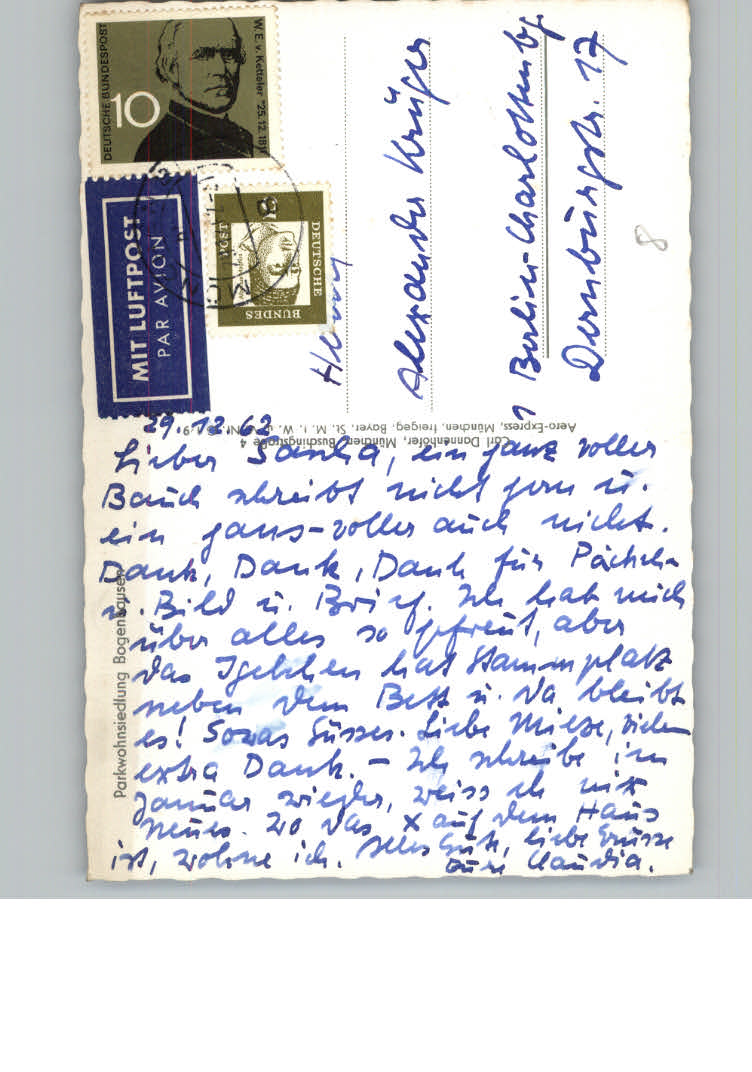 DEUTSCHE BUNDESPOST
10
W. E. v. Ketteler *25.12.181
MIT LUFTPOST
PAR AVION
DEUTSCHE
BUNDES
POST
Herrn
Alexander Krüger
1 Berlin-Charlottenbg.
Dernburgstr. 17
8
Carl Dannenhofer, München, Buschingstraße 4
Aero-Express, München, freigeg. Bayer. St. M. f. W.
Parkwohnsiedlung Bogenhausen
29.12.62
Lieber Sascha, ein ganz voller
Bauch schreibt nicht gern u.
ein gans-voller auch nicht.
Dank, Dank, Dank für Päckchen
u. Bild u. Brief. Ich hab mich
über alles so gefreut, aber
das Igelchen hat Stammplatz
neben dem Bett u. da bleibt
es! Sowas Süsses. Liebe Mieze, vielen
extra Dank. – Ich schreibe im
Januar wieder, weiss eh nix
neues. Wo das x auf dem Haus
ist, wohne ich. Alles Gute, liebe Grüsse
Eure Claudia.